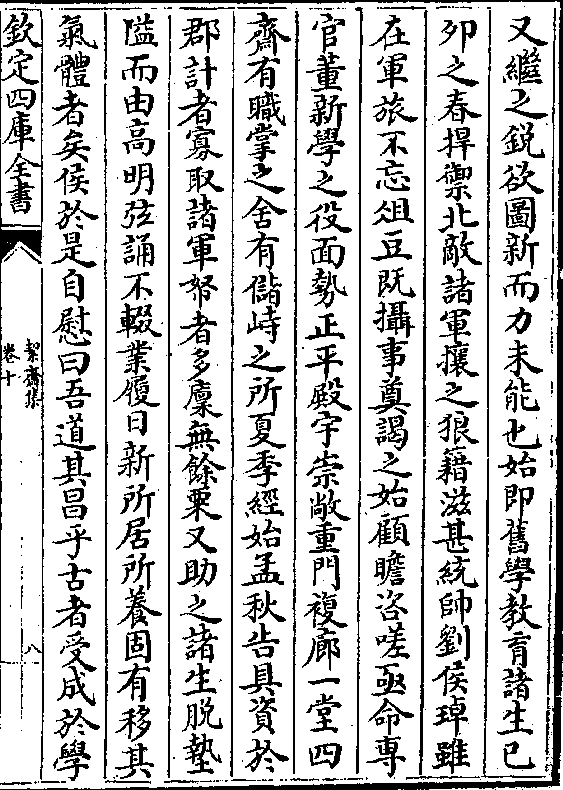 又繼之鋭欲圖新而力未能也始即舊學教育諸生已
夘之春捍禦北敵諸軍攘之狼籍滋甚統帥劉侯琸雖
在軍旅不忘俎豆既攝事奠謁之始顧瞻咨嗟亟命專
官董新學之役面勢正平殿宇崇敞重門複廊一堂四
齋有職掌之舍有儲峙之所夏季經始孟秋告具資於
郡計者寡取諸軍帑者多廩無餘粟又助之諸生脱墊
隘而由高明弦誦不輟業履日新所居所養固有移其
氣體者矣侯於是自慰曰吾道其昌乎古者受成於學
欽定四庫全書
絜齋集
卷十
八